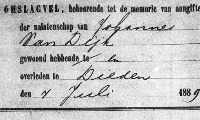 OMSLAGVEL, behoorende tot de memorie van aangifte
der nalatenschap van Johannes
Van Dijk
gewoond hebbende te en
overleden te Dieden
den 4 Juli 1889